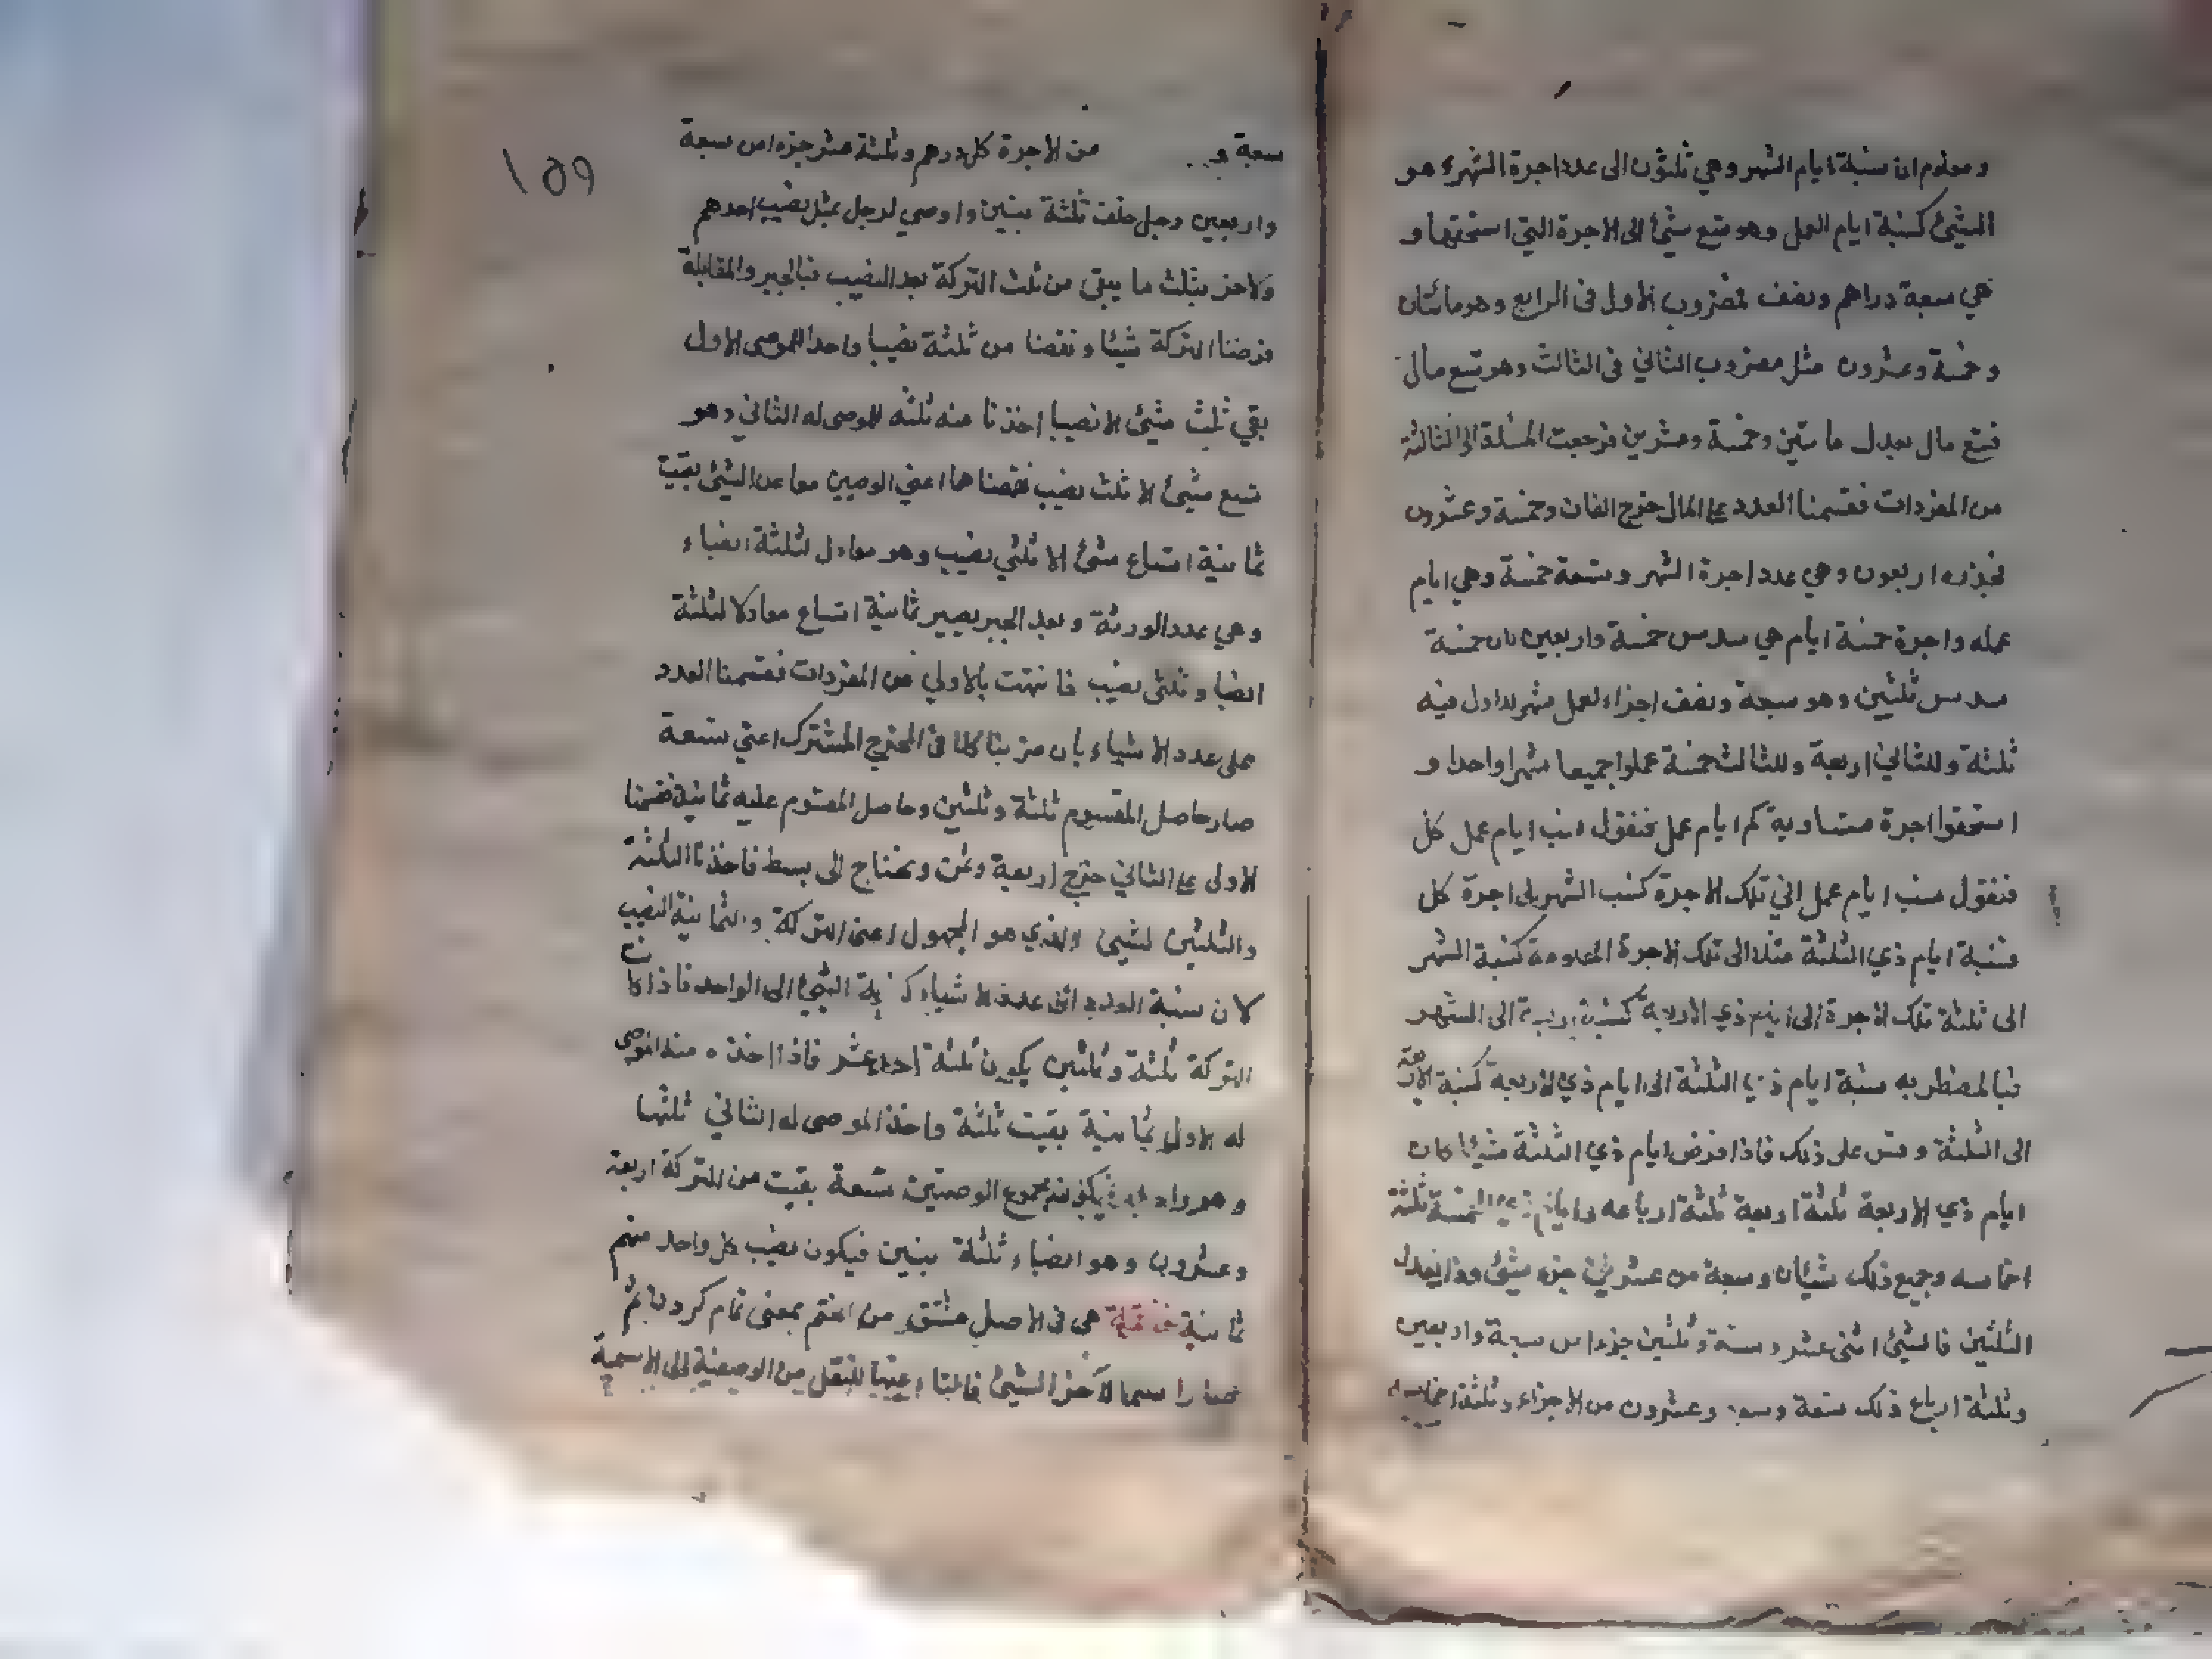 ومعلوم ان نسبة ايام الشهر وهي ثلثون الى عدد اجرة الشهر وهو
الشيئ كنسبة ايام العمل وهو تسع شيئ الى الاجرة التي استحقها و
هي سبعة دراهم ونصف فمضروب الاول فى الرابع وهو مائتان
وخمسة وعشرون مثل مضروب الثاني فى الثالث وهو تسع مال
فتسع مال يعدل مايتين وخمسة وعشرين فرجعت المسئلة الى الثالثة
من المفردات فقسمنا العدد على المال خرج الفان وخمسة وعشرون
فجذره اربعون وهي عدد اجرة الشهر وتسعة خمسة وهي ايام
عمله واجرة خمسة ايام هي سدس خمسة واربعين لان خمسة
سدس ثلثين وهو سبعة ونصف اجراء لعمل شهر للاول فيه
ثلثة وللثاني اربعة وللثالث خمسة عملوا جميعا شهرا واحدا و
استحقوا اجرة متساوية كم ايام عمل فنقول ايام عمل كل
فنقول نسب ايام عمل الى تلك الاجرة كنسب الشهر الى اجرة كل
فنسبة ايام ذي الثلثة مثلا الى تلك الاجرة المعلومة كنسبة الشهر
الى ثلثة تلك الاجرة الى ايام ذي الاربعة كنسبة اربعة الى الشهر
فبالمضطربه نسبة ايام ذي الثلثة الى ايام ذي الاربعة كنسبة الاربعة
الى الثلثة وقس على ذلك فاذا فرض ايام ذي الثلثة شيئا كان
ايام ذي الاربعة ثلثة اربعة ثلثة ارباعه وايام ذي الخمسة ثلثة
اخماسه وجميع ذلك شيئان وسبعة من عشرين جزء شيئ وهذا يعدل
الثلثين فالشيئ اثنى عشر وستة وثلثين جزء من سبعة واربعين
وثلثة ارباع ذلك تسعة وسبعة وعشرون من الاجزاء وثلثة اخماسه
١٥٩
سبعة و من الاجرة كل درهم وثلثة عشر جزء من سبعة
واربعين رجل خلف ثلثة بنين واوصي لرجل بمثل نصيب احدهم
ولاخر بثلث ما يبقى من ثلث التركة بعد النصيب فبالجبر والمقابلة
فرضنا التركة شيئا ونقصنا من ثلثه نصيبا واحدا للموصى الاول
بقي ثلث شيئ الا نصيبا اخذنا منه ثلثه للموصى له الثاني وهو
تسع شيئ الا ثلث نصيب فنقصناهما اعني الوصيين معا عن الشيئ بقيت
ثمانية اتساع شيئ الا ثلثي نصيب وهو معادل لثلثة انصباء
وهي عدد الورثة وبعد الجبر يصير ثمانية اتساع معادلا لثلثة
انصبا وثلثى نصيب فانتهت بالاولي من المفردات فقسمنا العدد
على عدد الاشياء بان ضربنا كلا فى المخرج المشترك اعني تسعة
صار حاصل المقسوم ثلثة وثلثين وحاصل المقسوم عليه ثمانية قسمنا
الاولى على الثاني خرج اربعة وثمن ويحتاج الى بسط فاخذنا الثلثة
والثلثين لشيئ الذي هو المجهول اعنى التركة والثمانية النصيب
لان نسبة العدد الى عدد الاشياء كنسبة الشيئ الى الواحد فاذا كان
التركة ثلثة وثلثين يكون ثلثة احد عشر فاذا اخذه منه الموصى
له الاول ثمانية بقيت ثلثة واخذ الموصى له الثاني ثلثها
وهو واحد فيكون مجموع الوصيتين تسعة بقيت من التركة اربعة
وعشرون وهو انصباء ثلثة بنين فيكون نصيب كل واحد منهم
ثمانية خاتمة هى فى الاصل مشتق من الختم بمعنى تمام كردن ثم
صار اسما لآخر الشيئ فالتا فيها للنقل من الوصفية الى الاسمية